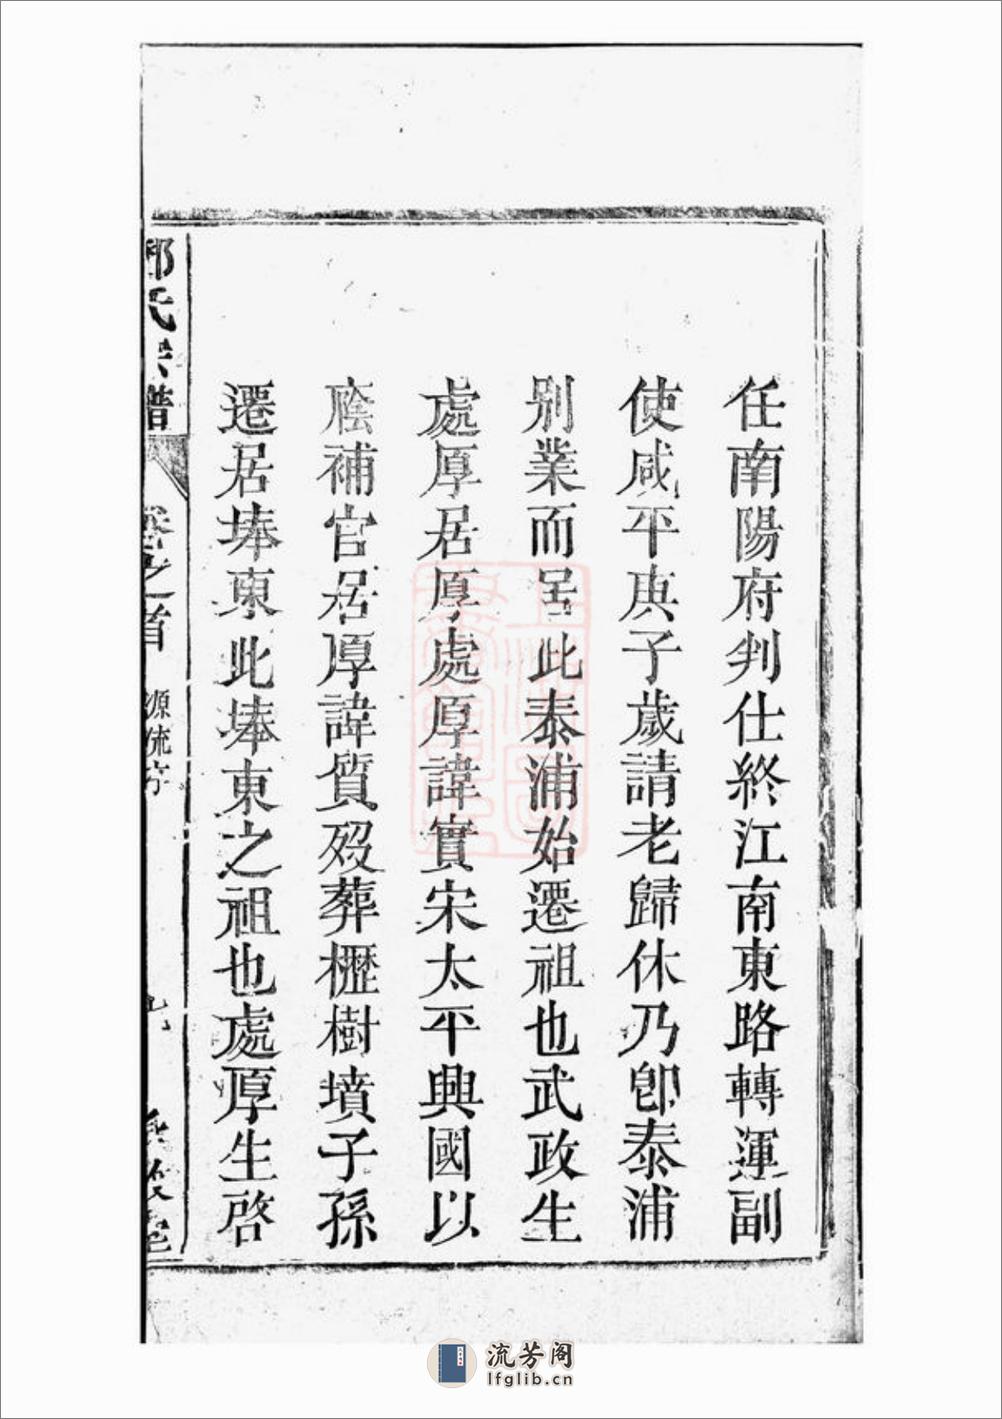 任南陽府判仕終江南東路轉運副
使咸平庚子歲請老歸休乃卽泰浦
別業而居此泰浦始遷祖也武政生
處厚居厚處厚諱實宋太平興國以
廕補官居厚諱質歿葬櫪樹墳子孫
遷居埲東此埲東之祖也處厚生啓
氏宗譜
卷之首
源流序
流芳阁
lfglib.cn